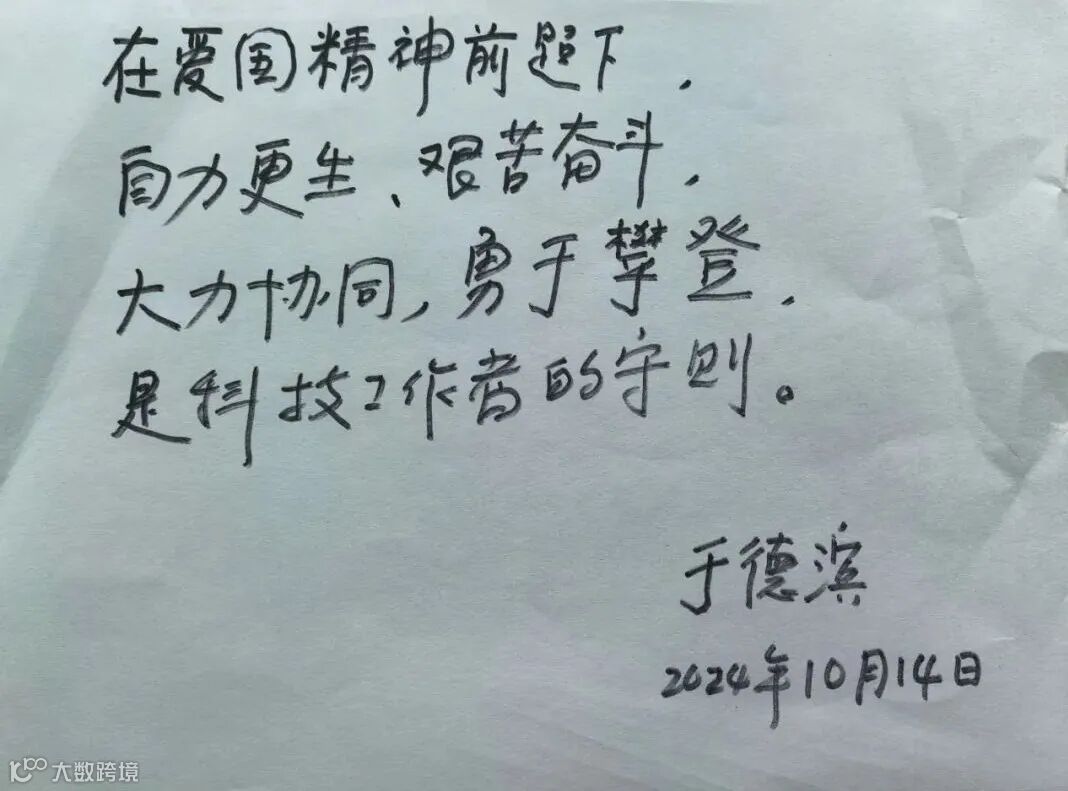 在爱国精神前题下，
自力更生、艰苦奋斗，
大力协同，勇于攀登，
是科技工作者的守则。
于德滨
2024年10月14日
大数跨境